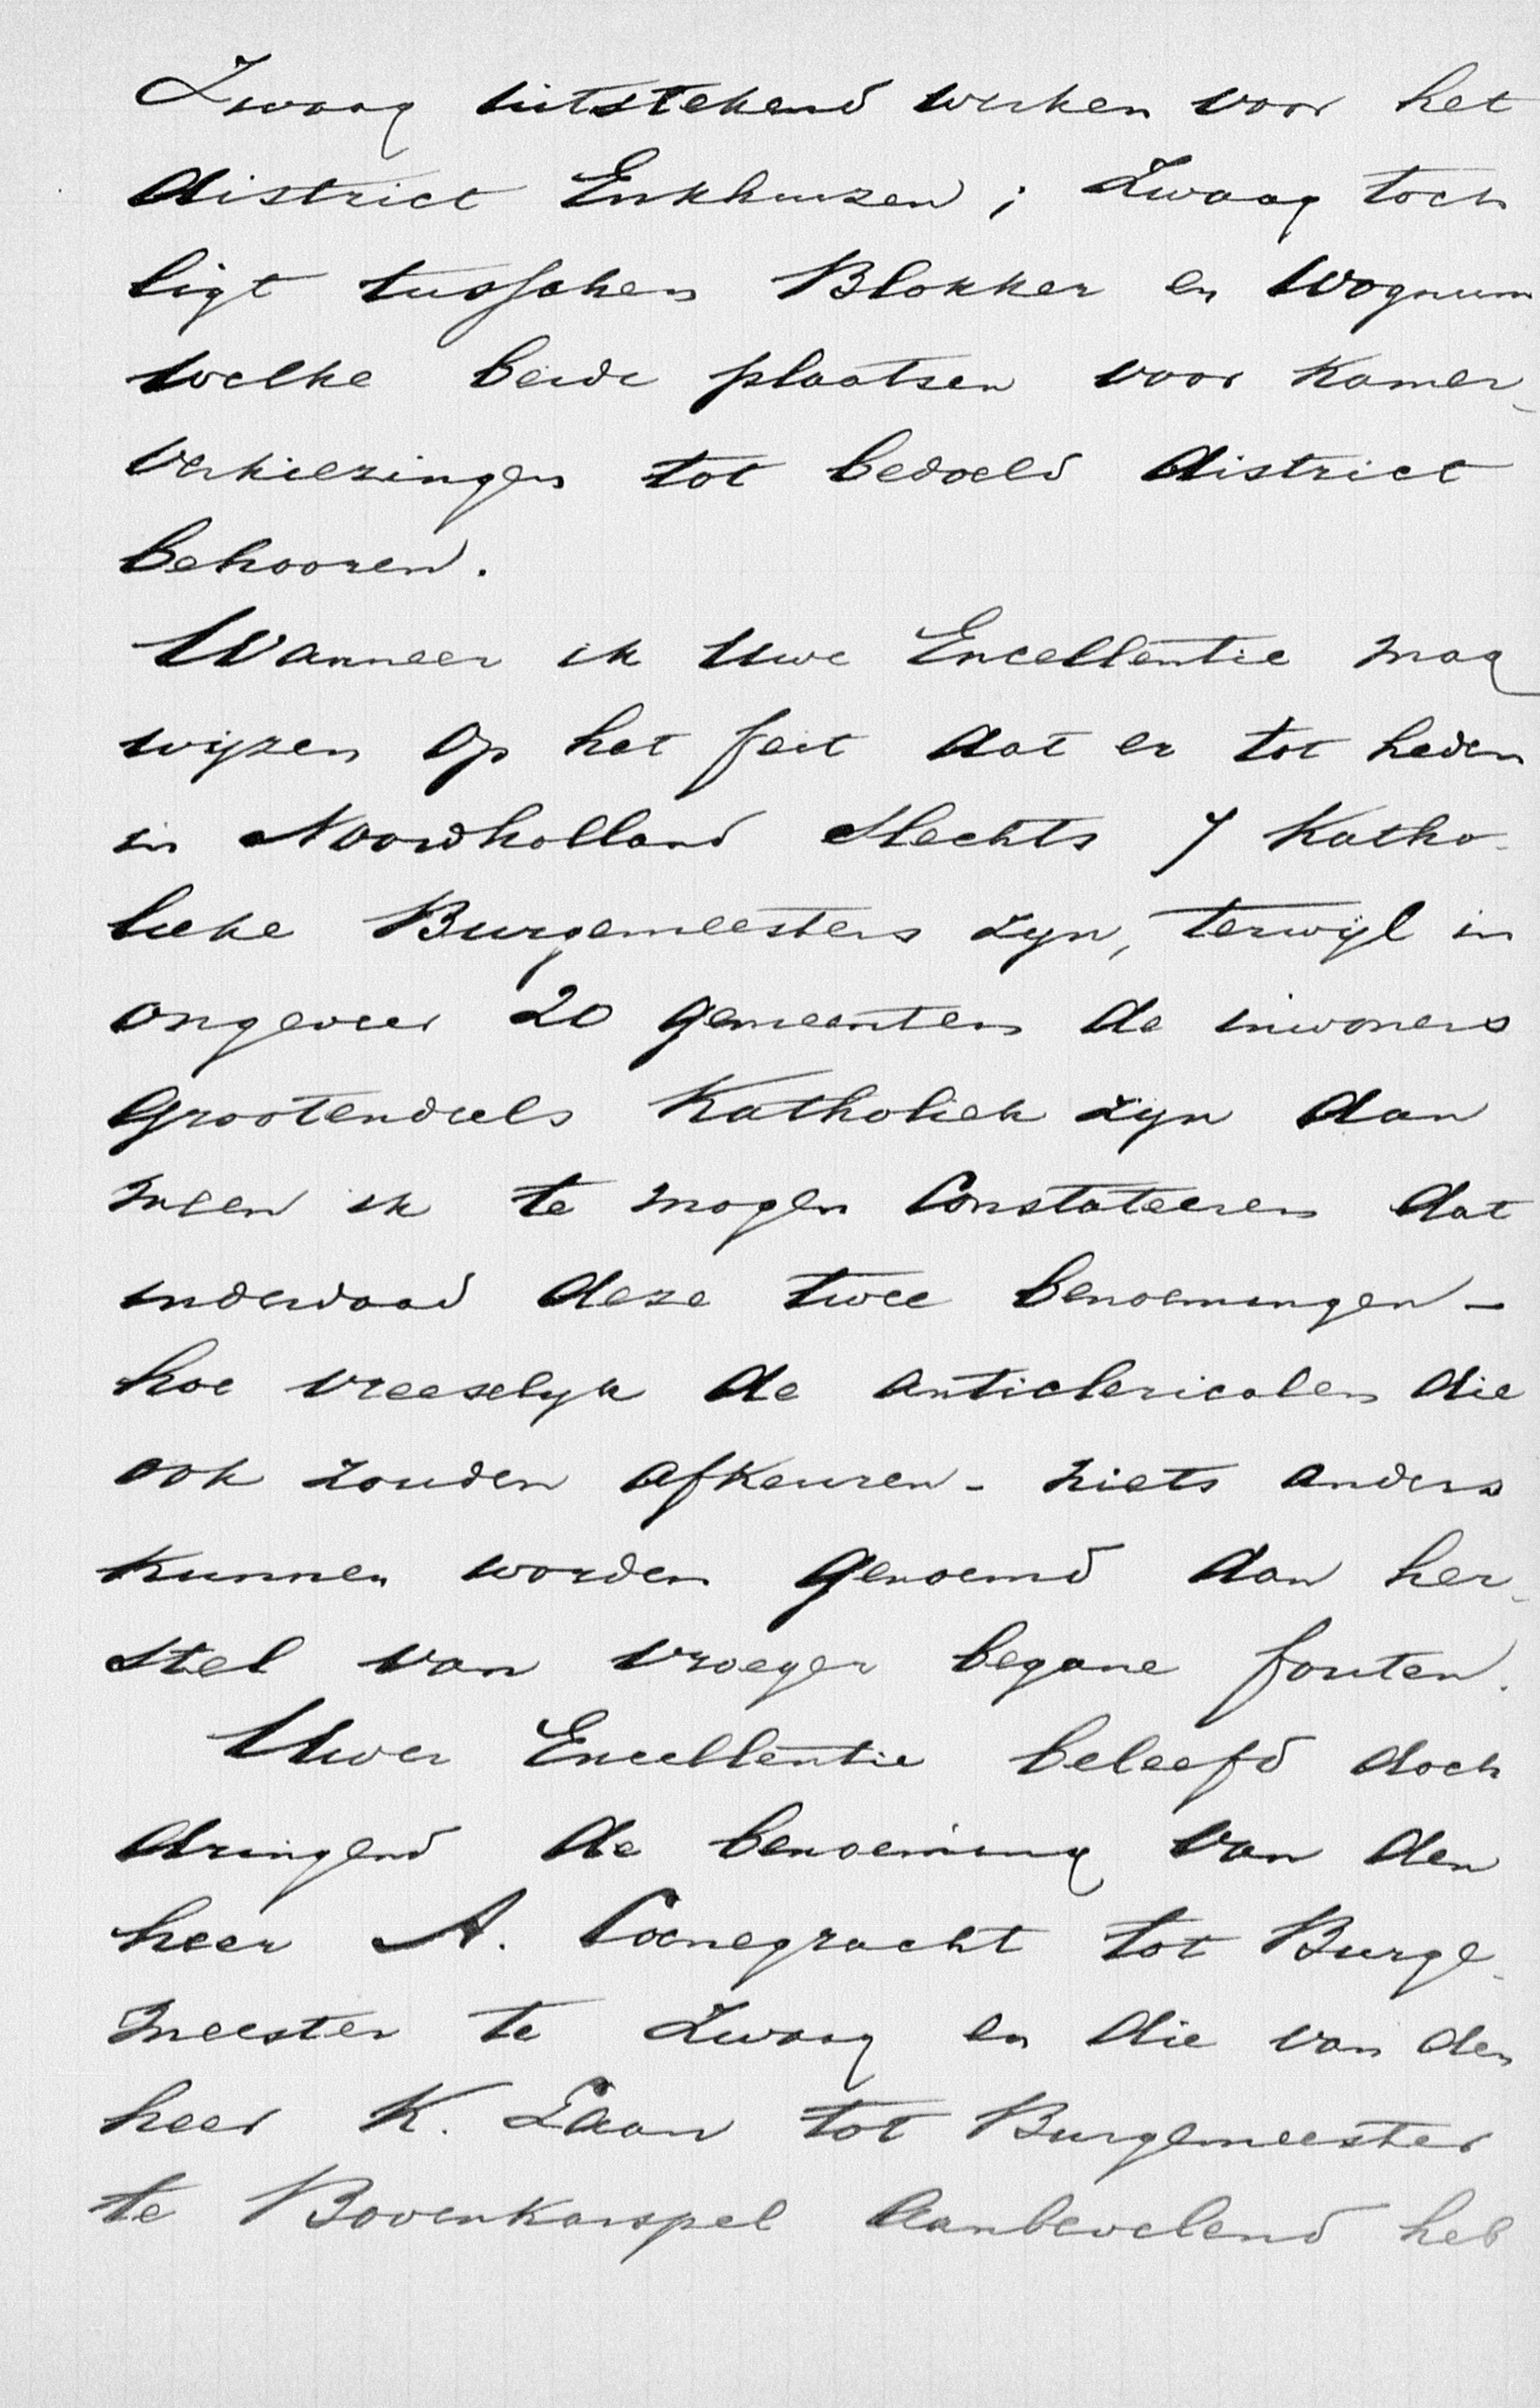 Zwaag uitstekend werken voor het
district Enkhuizen; Zwaag toch
ligt tusschen Blokker en Wognum
welke beide plaatsen voor Kamer-
verkiezingen tot bedoeld district
behooren.
Wanneer ik Uwe Excellentie mag
wijzen op het feit dat er tot heden
in Noordholland slechts 7 Katho-
lieke Burgemeesters zijn, terwijl in
ongeveer 20 gemeenten de inwoners
grootendeels Katholiek zijn dan
meen ik te mogen constateeren dat
inderdaad deze twee benoemingen -
hoe vreeselijk de anticlericalen die
ook zouden afkeuren - niets anders
kunnen worden genoemd dan her-
stel van vroeger begane fouten.
Uwer Excellentie beleefd doch
dringend de benoeming van den
heer A. Coenegracht tot Burge-
meester te Zwaag en die van den
heer K. Laan tot Burgemeester
te Bovenkarspel aanbevelend heb